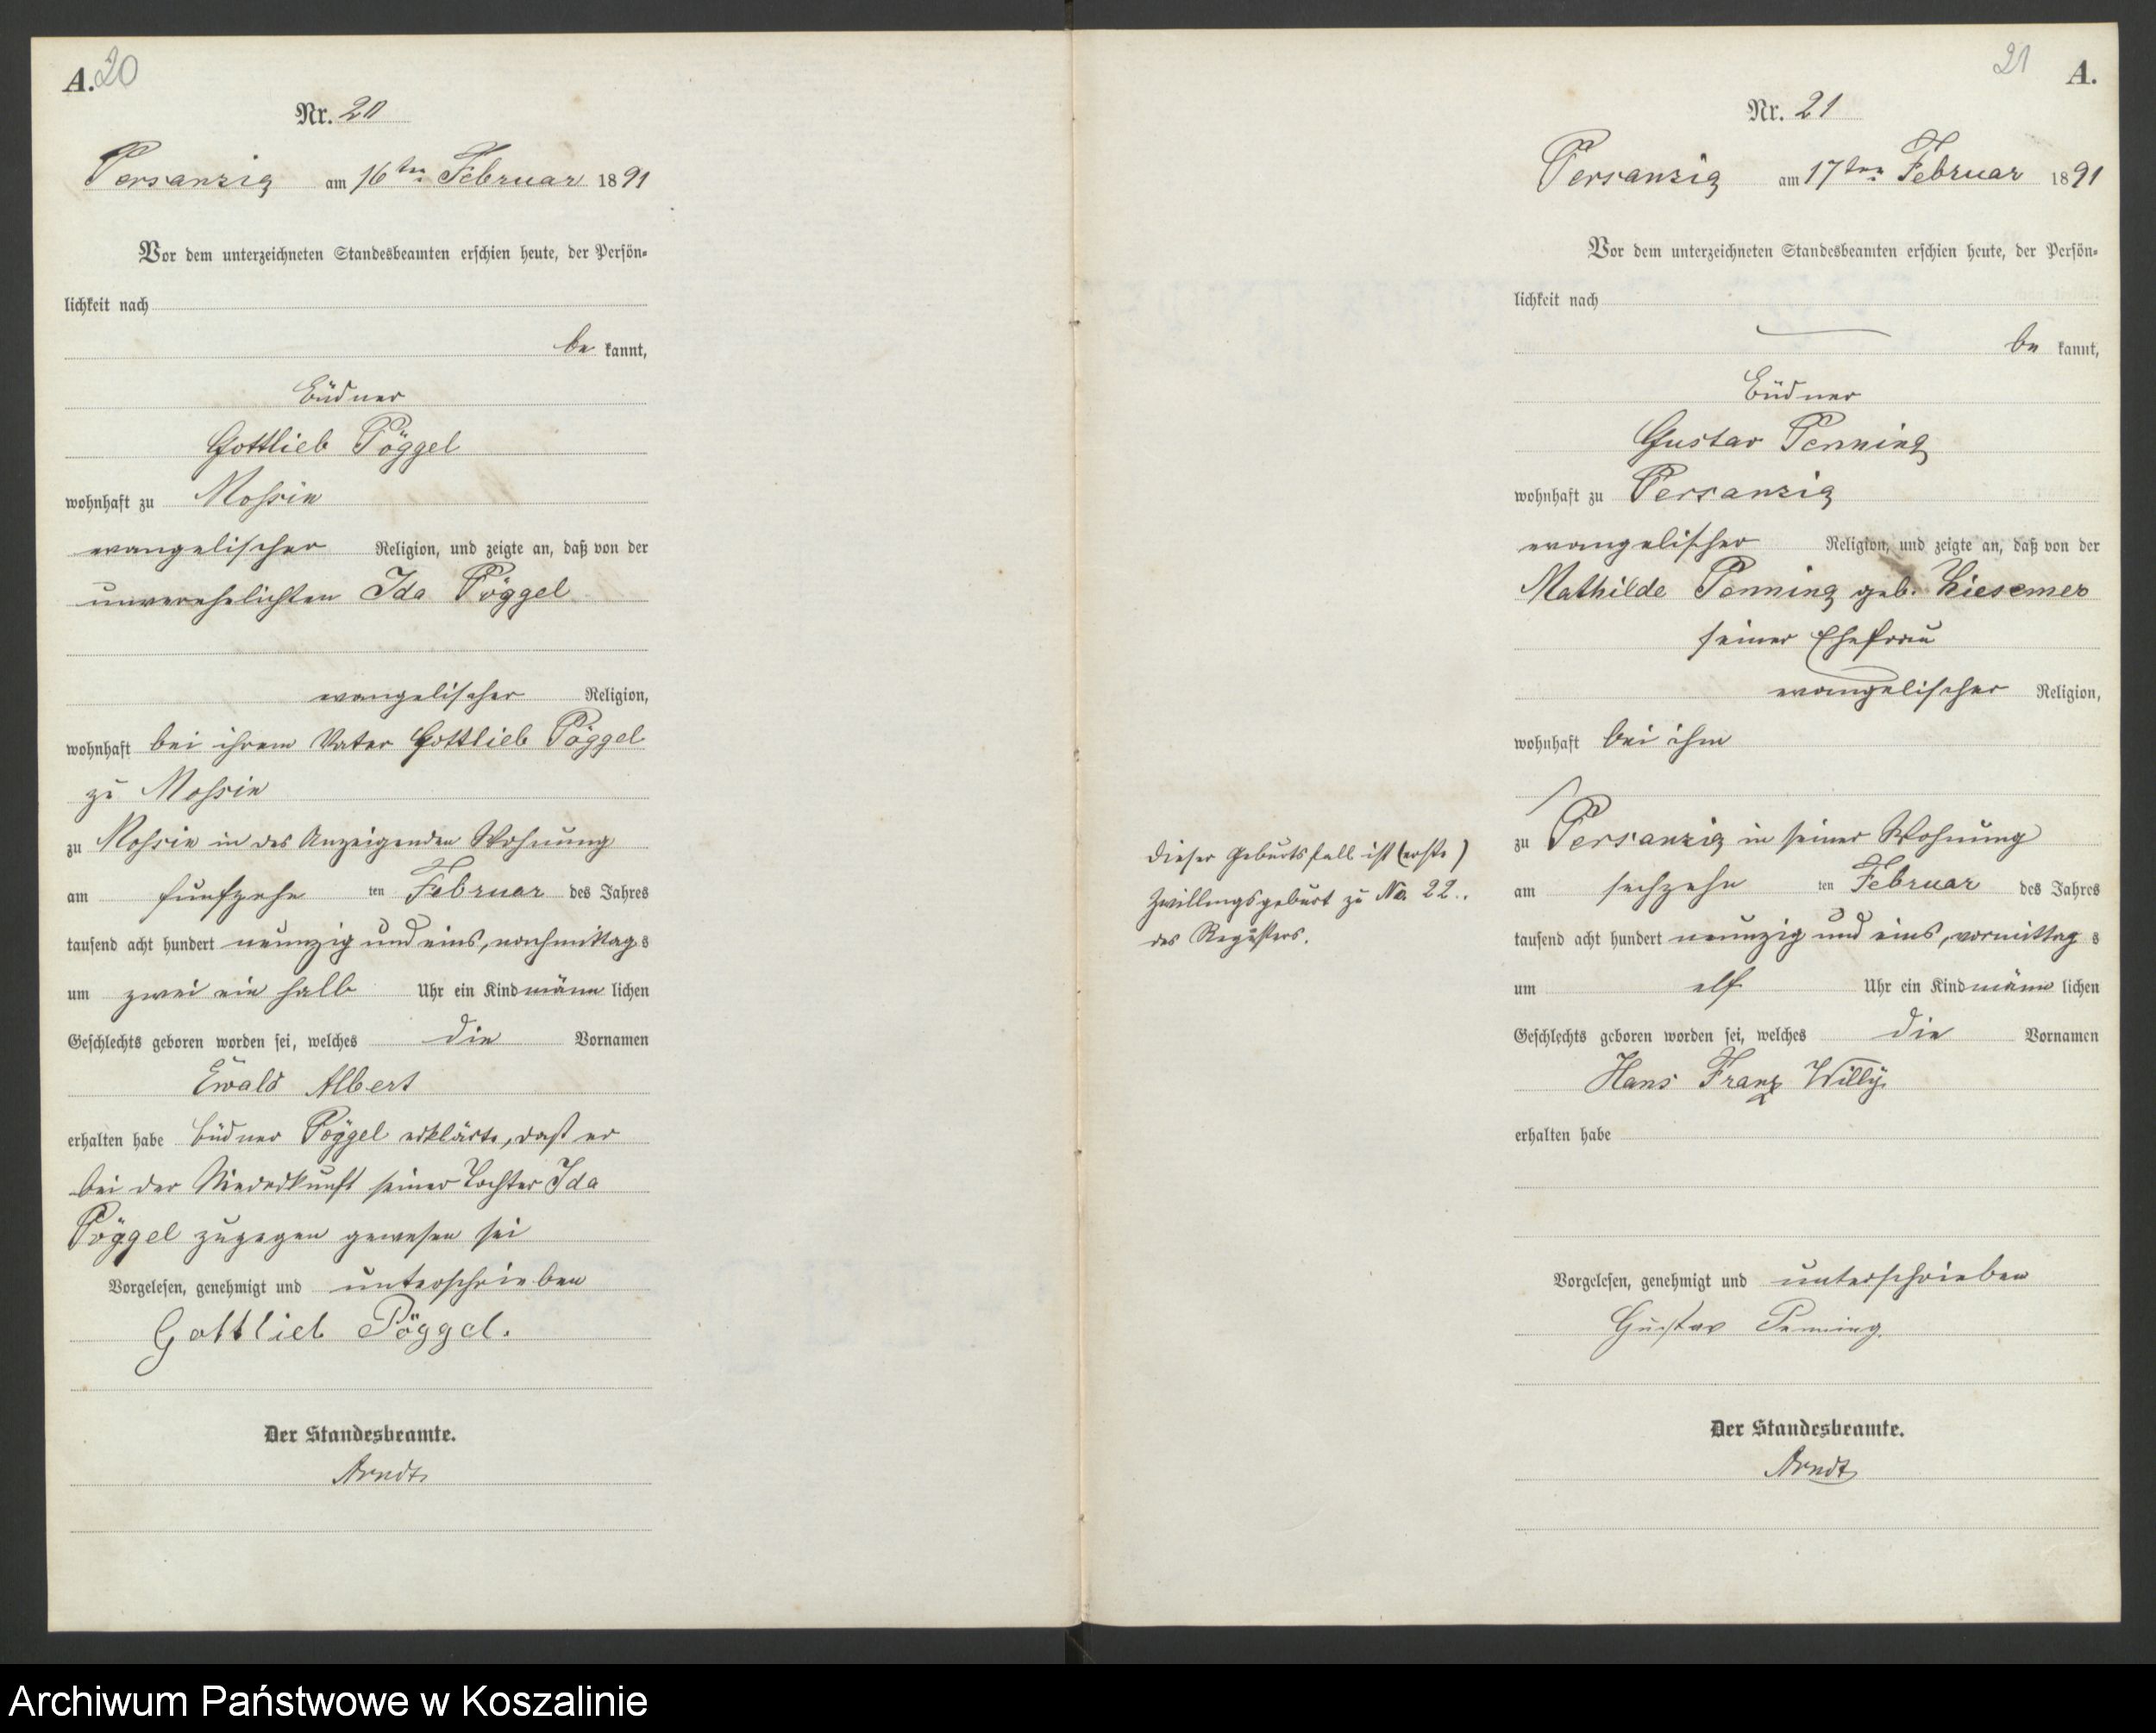 A. 20
Nr. 20
Persanzig am 16ten Februar 1891
Vor dem unterzeichneten Standesbeamten erschien heute, der Persön-
lichkeit nach
be kannt,
Büdner
Gottlieb Pöggel
wohnhaft zu Mossin
evangelischer Religion, und zeigte an, daß von der
unverehelichten Ida Pöggel
evangelischer Religion,
wohnhaft bei ihrem Vater Gottlieb Pöggel
zu Mossin
zu Mossin in des Anzeigenden Wohnung
am fünfzehn ten Februar des Jahres
tausend acht hundert neunzig und eins, nachmittag s
um zwei ein halb Uhr ein Kind männ lichen
Geschlechts geboren worden sei, welches die Vornamen
Ewald Albert
erhalten habe Büdner Pöggel erklärte, daß er
bei der Niederkunft seiner Tochter Ida
Pöggel zugegen gewesen sei
Vorgelesen, genehmigt und unterschrieben
Gottlieb Pöggel.
Der Standesbeamte.
Arndt
21 A.
Nr. 21
Persanzig am 17ten Februar 1891
Vor dem unterzeichneten Standesbeamten erschien heute, der Persön-
lichkeit nach
be kannt,
Büdner
Gustav Penning
wohnhaft zu Persanzig
evangelischer Religion, und zeigte an, daß von der
Mathilde Penning geb. Liesemer
seiner Ehefrau
evangelischer Religion,
wohnhaft bei ihm
zu Persanzig in seiner Wohnung
am sechzehn ten Februar des Jahres
tausend acht hundert neunzig und eins, vormittag s
um elf Uhr ein Kind männ lichen
Geschlechts geboren worden sei, welches die Vornamen
Hans Franz Willy
erhalten habe
Vorgelesen, genehmigt und unterschrieben
Gustav Penning.
Der Standesbeamte.
Arndt
Dieser Geburtsfall ist (erste)
Zwillingsgeburt zu No 22.
des Registers.
Archiwum Państwowe w Koszalinie